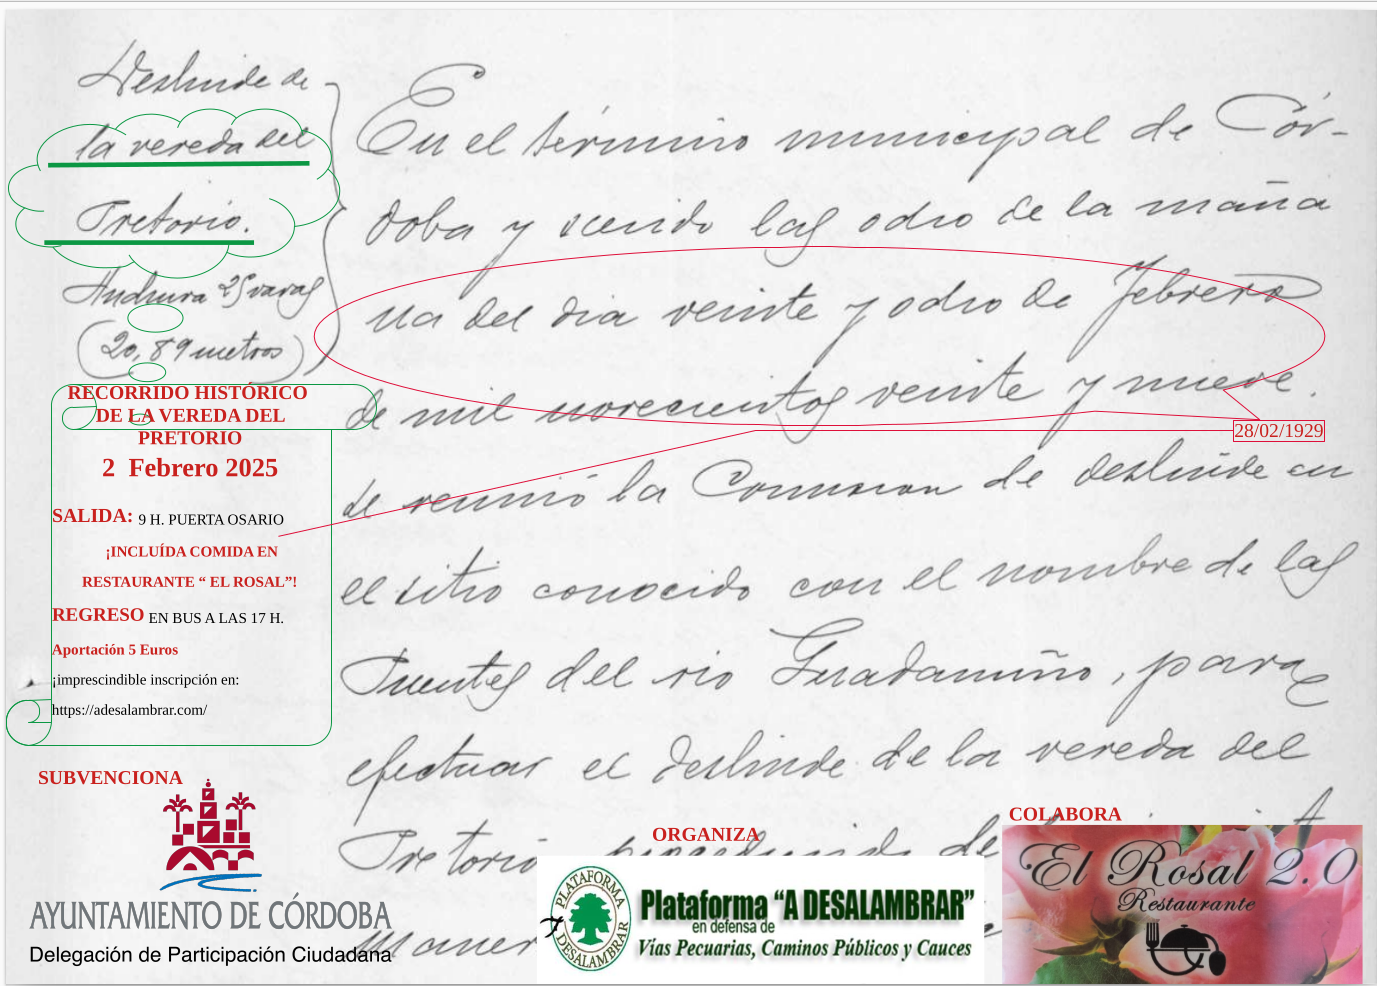 Deslinde de
la vereda del
Pretorio.
Anchura 25 varas
(20,89 metros)
En el término municipal de Cór-
doba y siendo las ocho de la maña
na del dia veinte y ocho de Febrero
de mil novecientos veinte y nueve.
28/02/1929
se reunió la Comision de deslinde en
el sitio conocido con el nombre de los
Puentes del rio Guadamiño, para
efectuar el deslinde de la vereda del
Pretorio procediendo de
maner
RECORRIDO HISTÓRICO
DE LA VEREDA DEL
PRETORIO
2 Febrero 2025
SALIDA: 9 H. PUERTA OSARIO
¡INCLUÍDA COMIDA EN
RESTAURANTE “ EL ROSAL”!
REGRESO EN BUS A LAS 17 H.
Aportación 5 Euros
¡imprescindible inscripción en:
https://adesalambrar.com/
SUBVENCIONA
AYUNTAMIENTO DE CÓRDOBA
Delegación de Participación Ciudadana
ORGANIZA
PLATAFORMA
DESALAMBRAR
Plataforma “A DESALAMBRAR”
en defensa de
Vías Pecuarias, Caminos Públicos y Cauces
COLABORA
El Rosal 2.0
Restaurante